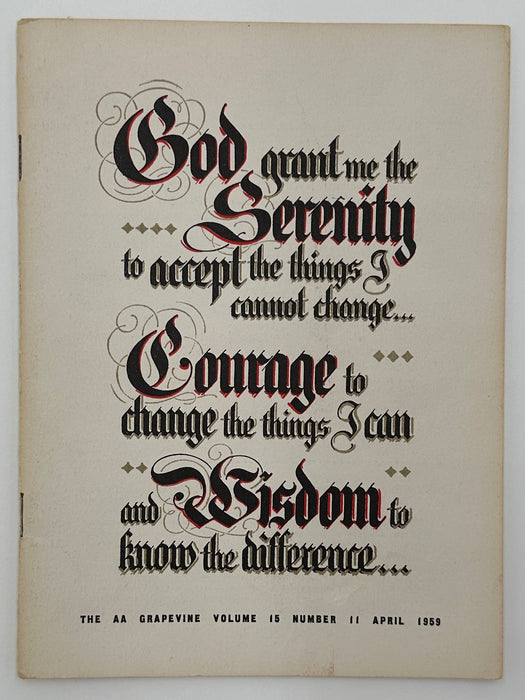 God grant me the
Serenity
to accept the things I
cannot change...
Courage to
change the things I can
and Wisdom to
know the difference...
THE AA GRAPEVINE VOLUME 15 NUMBER 11 APRIL 1959